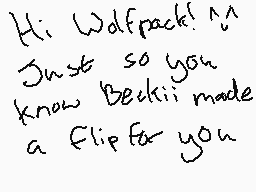 Hi Wolfpack! ^^
Just so you
know Beckii made
a flip for you